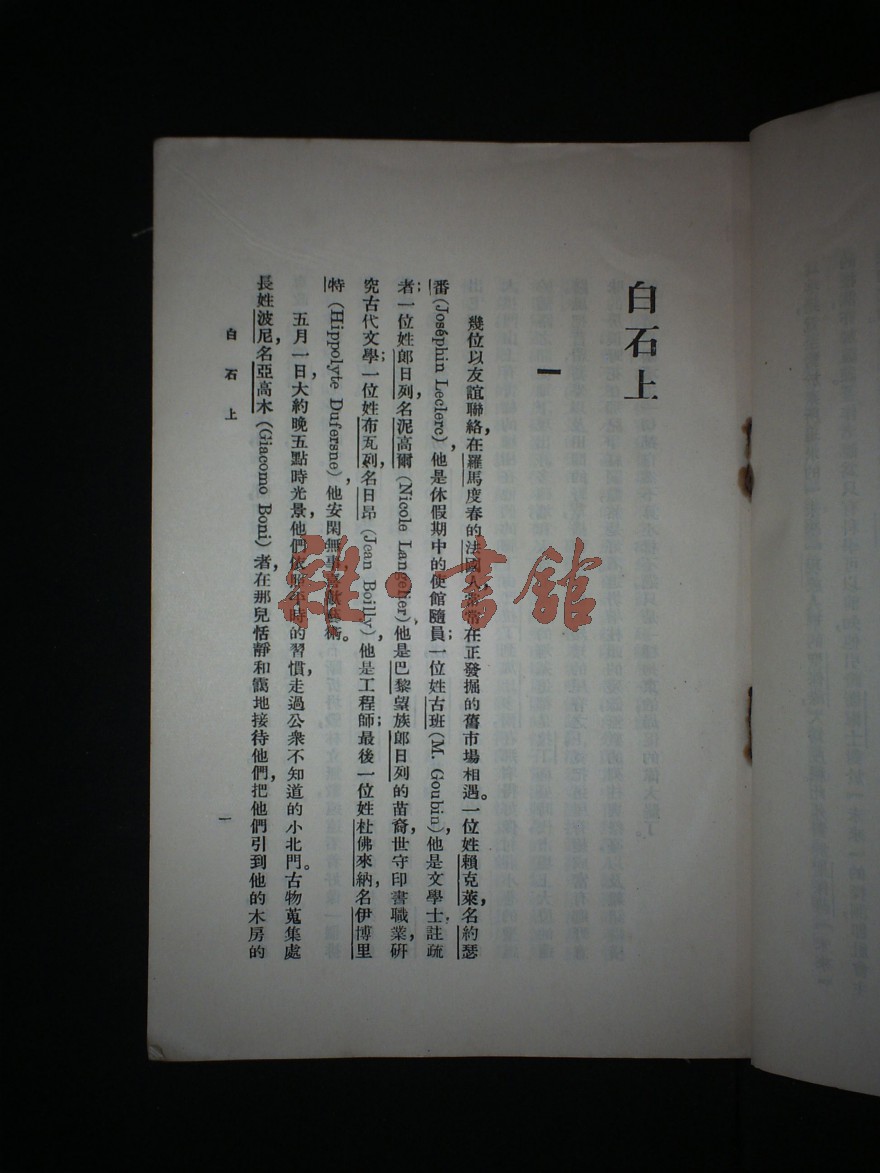 白石上
一
幾位以友誼聯絡,在羅馬度春的法國人常常在正發掘的舊市場相遇。一位姓賴克萊,名約瑟
番(Joséphin Leclerc),他是休假期中的使館隨員;一位姓古班(M. Goubin),他是文學士註疏
者;一位姓郎日列,名泥高爾(Nicole Langelier),他是巴黎望族郎日列的苗裔,世守印書職業,研
究古代文學;一位姓布瓦列,名日昂(Jean Boilly),他是工程師;最後一位姓杜佛來納,名伊博里
特(Hippolyte Dufersne),他安閑無事,喜歡藝術。
五月一日,大約晚五點時光景,他們依照午時的習慣,走過公衆不知道的小北門。古物蒐集處
長姓波尼,名亞高木(Giacomo Boni)者,在那兒恬靜和靄地接待他們,把他們引到他的木房的
白石上
一
雜·書館